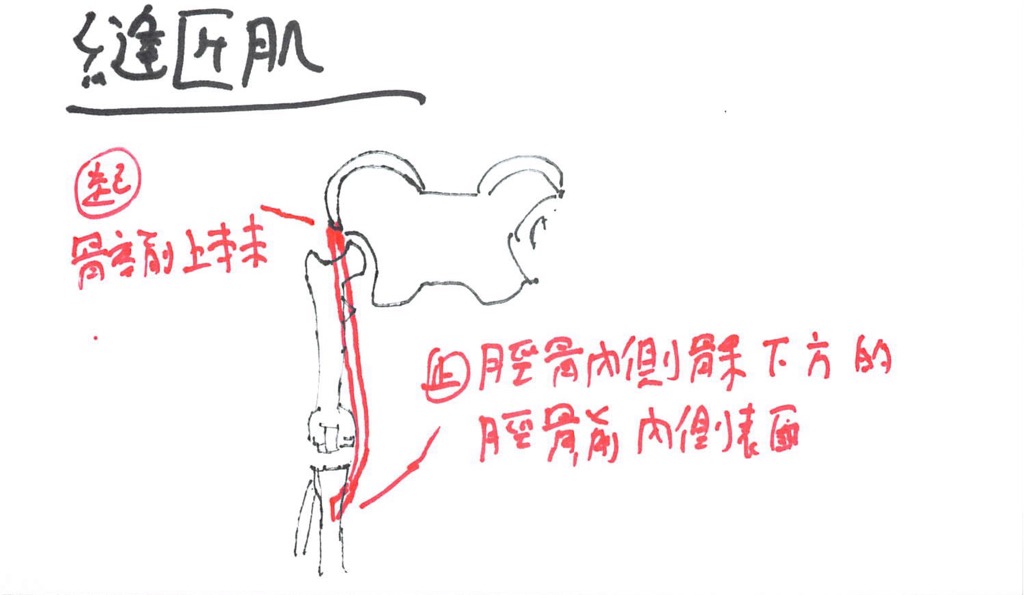 縫匠肌
起
髂前上棘
止 脛骨內側髁下方的
脛骨前內側表面